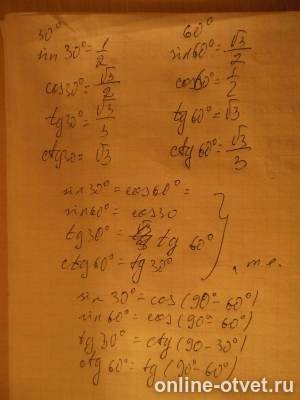 30° 60°
sin 30° = 1/2 sin 60° = √3/2
cos 30° = √3/2 cos 60° = 1/2
tg 30° = √3/3 tg 60° = √3
ctg 30 = √3 ctg 60° = √3/3
sin 30° = cos 60° =
sin 60° = cos 30
tg 30° = tg 60°
ctg 60° = tg 30°
, т.е.
sin 30° = cos (90° - 60°)
sin 60° = cos (90° - 60°)
tg 30° = ctg (90 - 30°)
ctg 60° = tg (90° - 60°)
online-otvet.ru